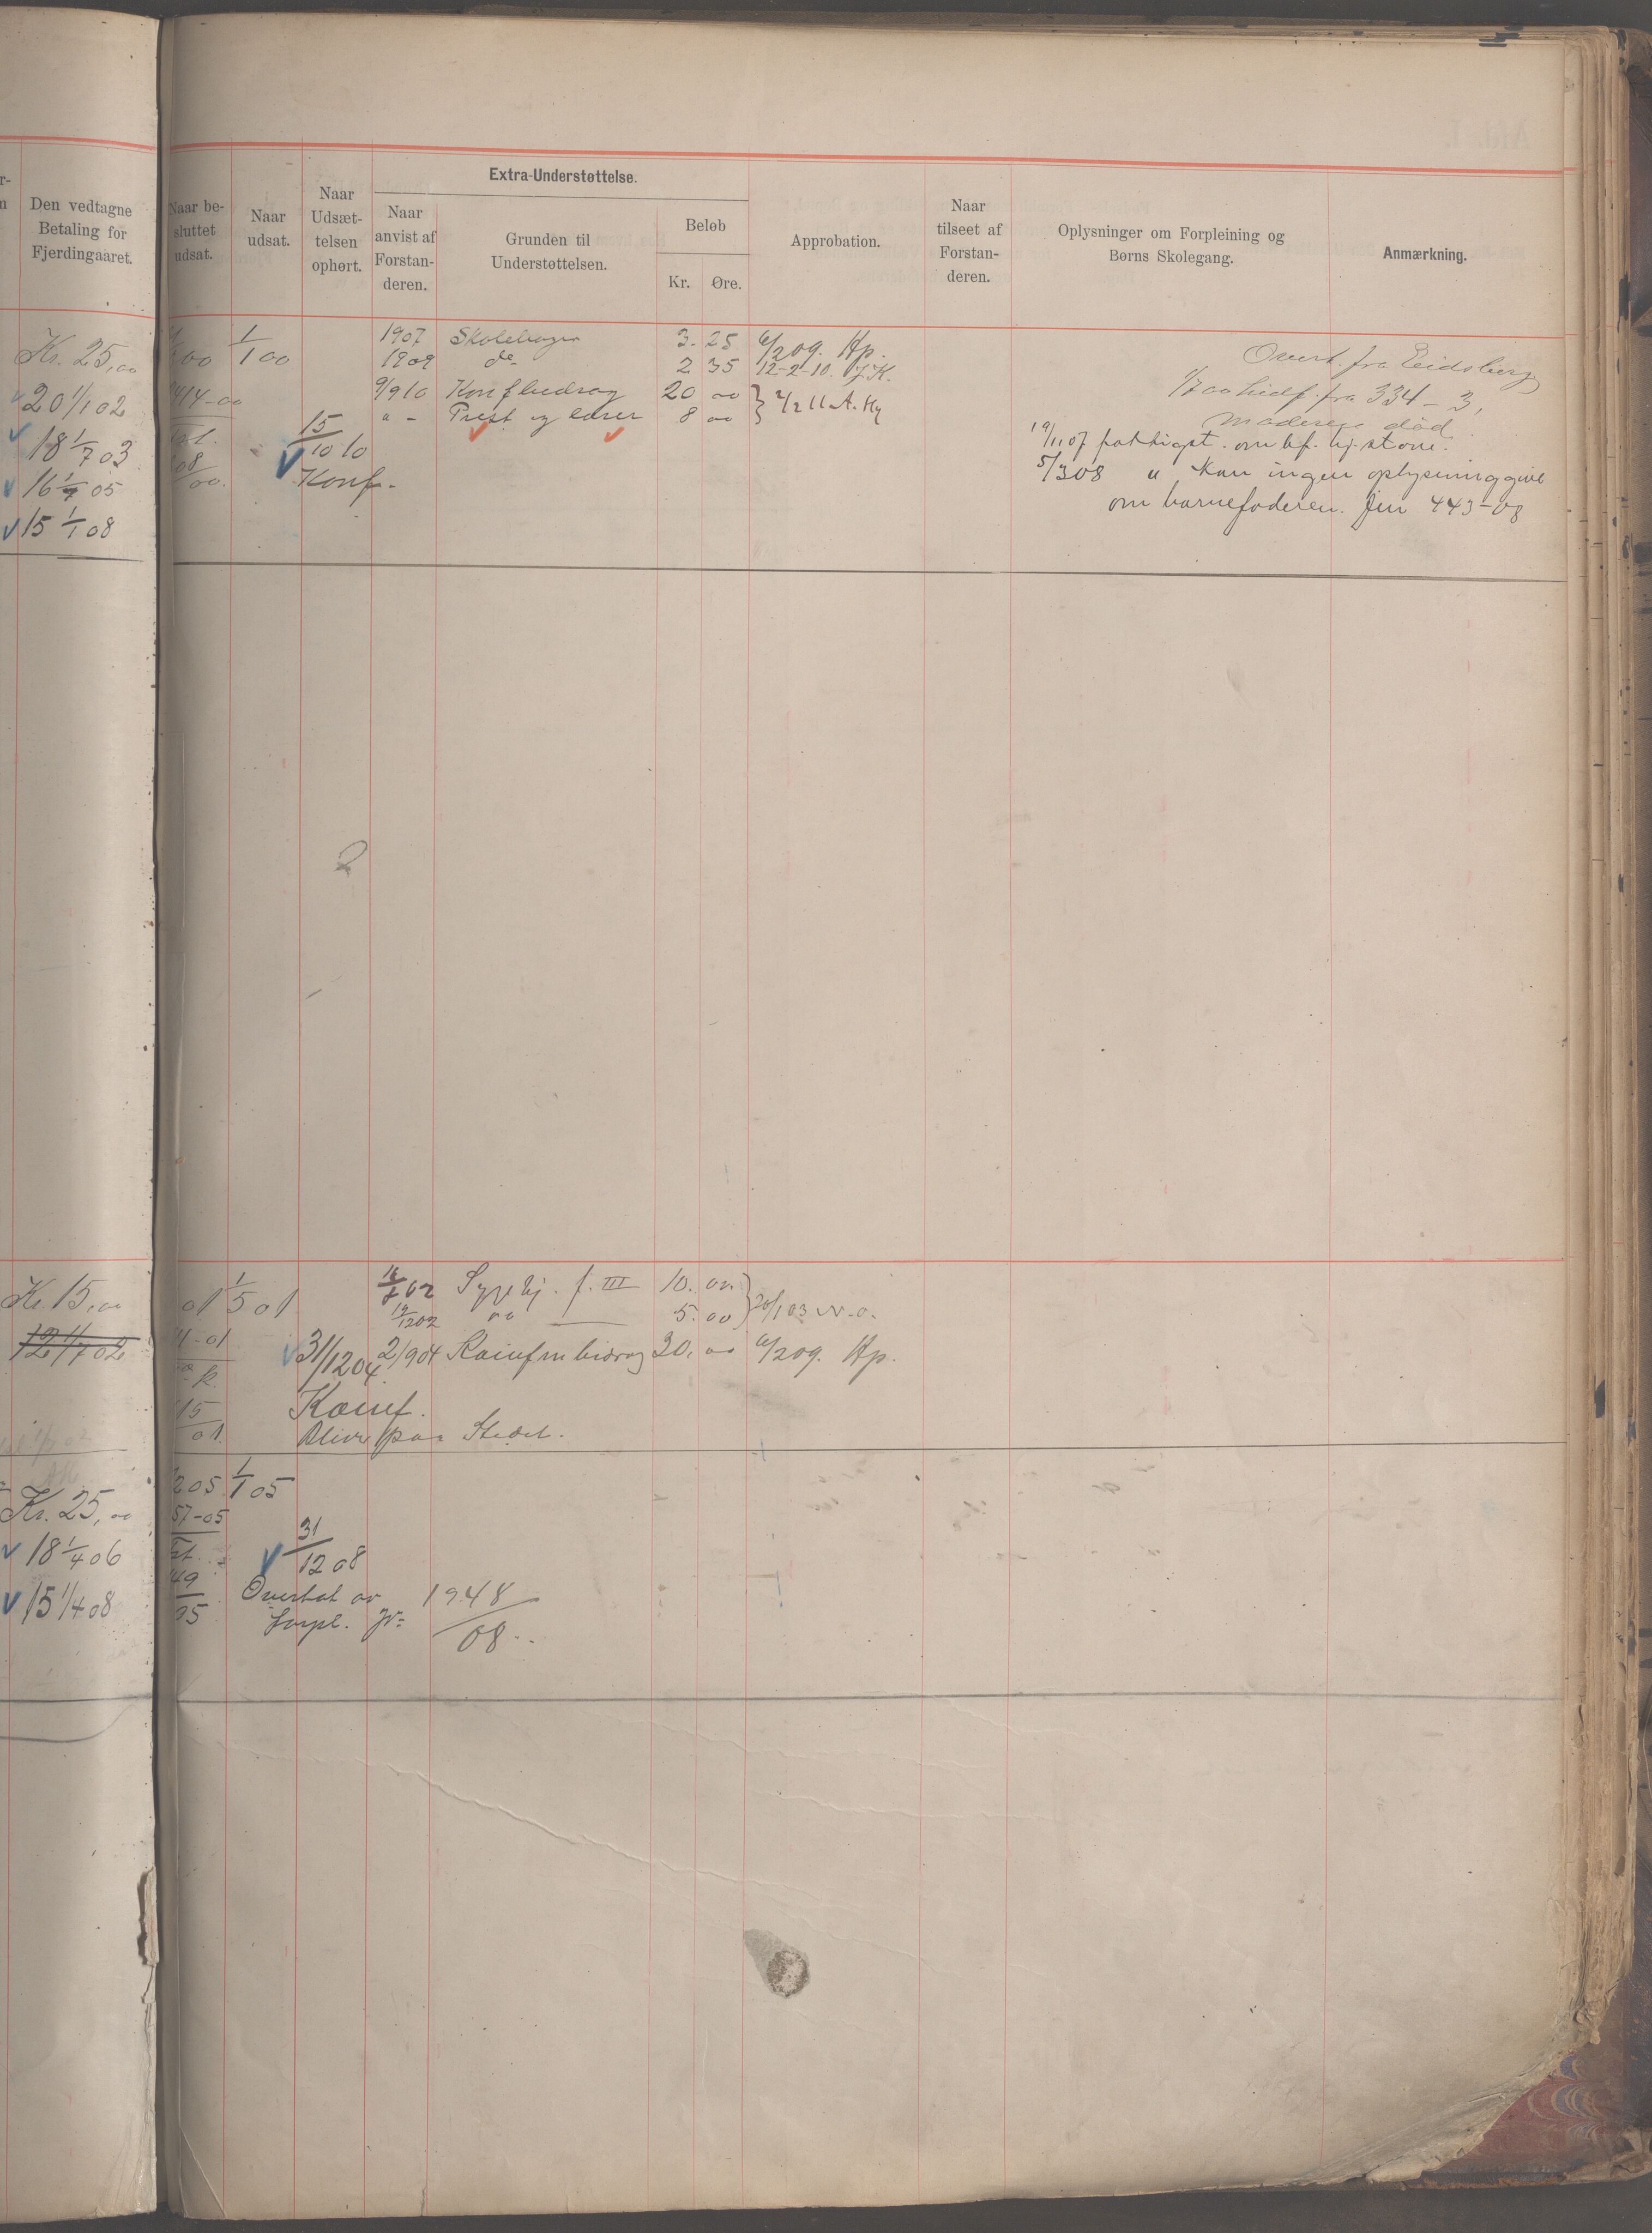 Den vedtagne
Betaling for
Fjerdingaaret.
Naar be-
sluttet
udsat.
Naar
udsat.
Naar
Udsæt-
telsen
ophørt.
Extra-Understøttelse.
Naar
anvist af
Forstan-
deren.
Grunden til
Understøttelsen.
Beløb
Kr. Øre.
Approbation.
Naar
tilseet af
Forstan-
deren.
Oplysninger om Forpleining og
Børns Skolegang.
Anmærkning.
Kr. 25,00
20 1/1 02
18 1/7 03
16 1/7 05
15 1/1 08
1/1 00
15/10 10
Konf.
1907 Skolebøger 3. 25 6/2 09. Hp.
1909 do 2 35 12-2-10. J.K.
9/9 10 Konfbidrag 20 00
" - Prest og lærer 8 00
Overt. fra Eidsberg
1/7 00 hidf. fra 334 - 3,
Moderen død.
19/11 07 fattigst. om bf.
5/3 08 " Kan ingen oplysning give
om barnefaderen. Jnr 443-08
Kr. 15,00
12 1/7 02
01 1/5 01
02 Sygehj. f. III 10. 00
12 02 5. 00 20/1 03 N.O.
31/12 04 2/9 04 Konfm bidrag 20. 00 6/2 09. Hp.
Konf.
Bliver paa Stedet.
15
01
Kr. 25,00
18 1/4 06
15 1/4 08
2 05 1/1 05
57-05
49
05
31/12 08
Overtat av
forpl. Jr: 1948/08